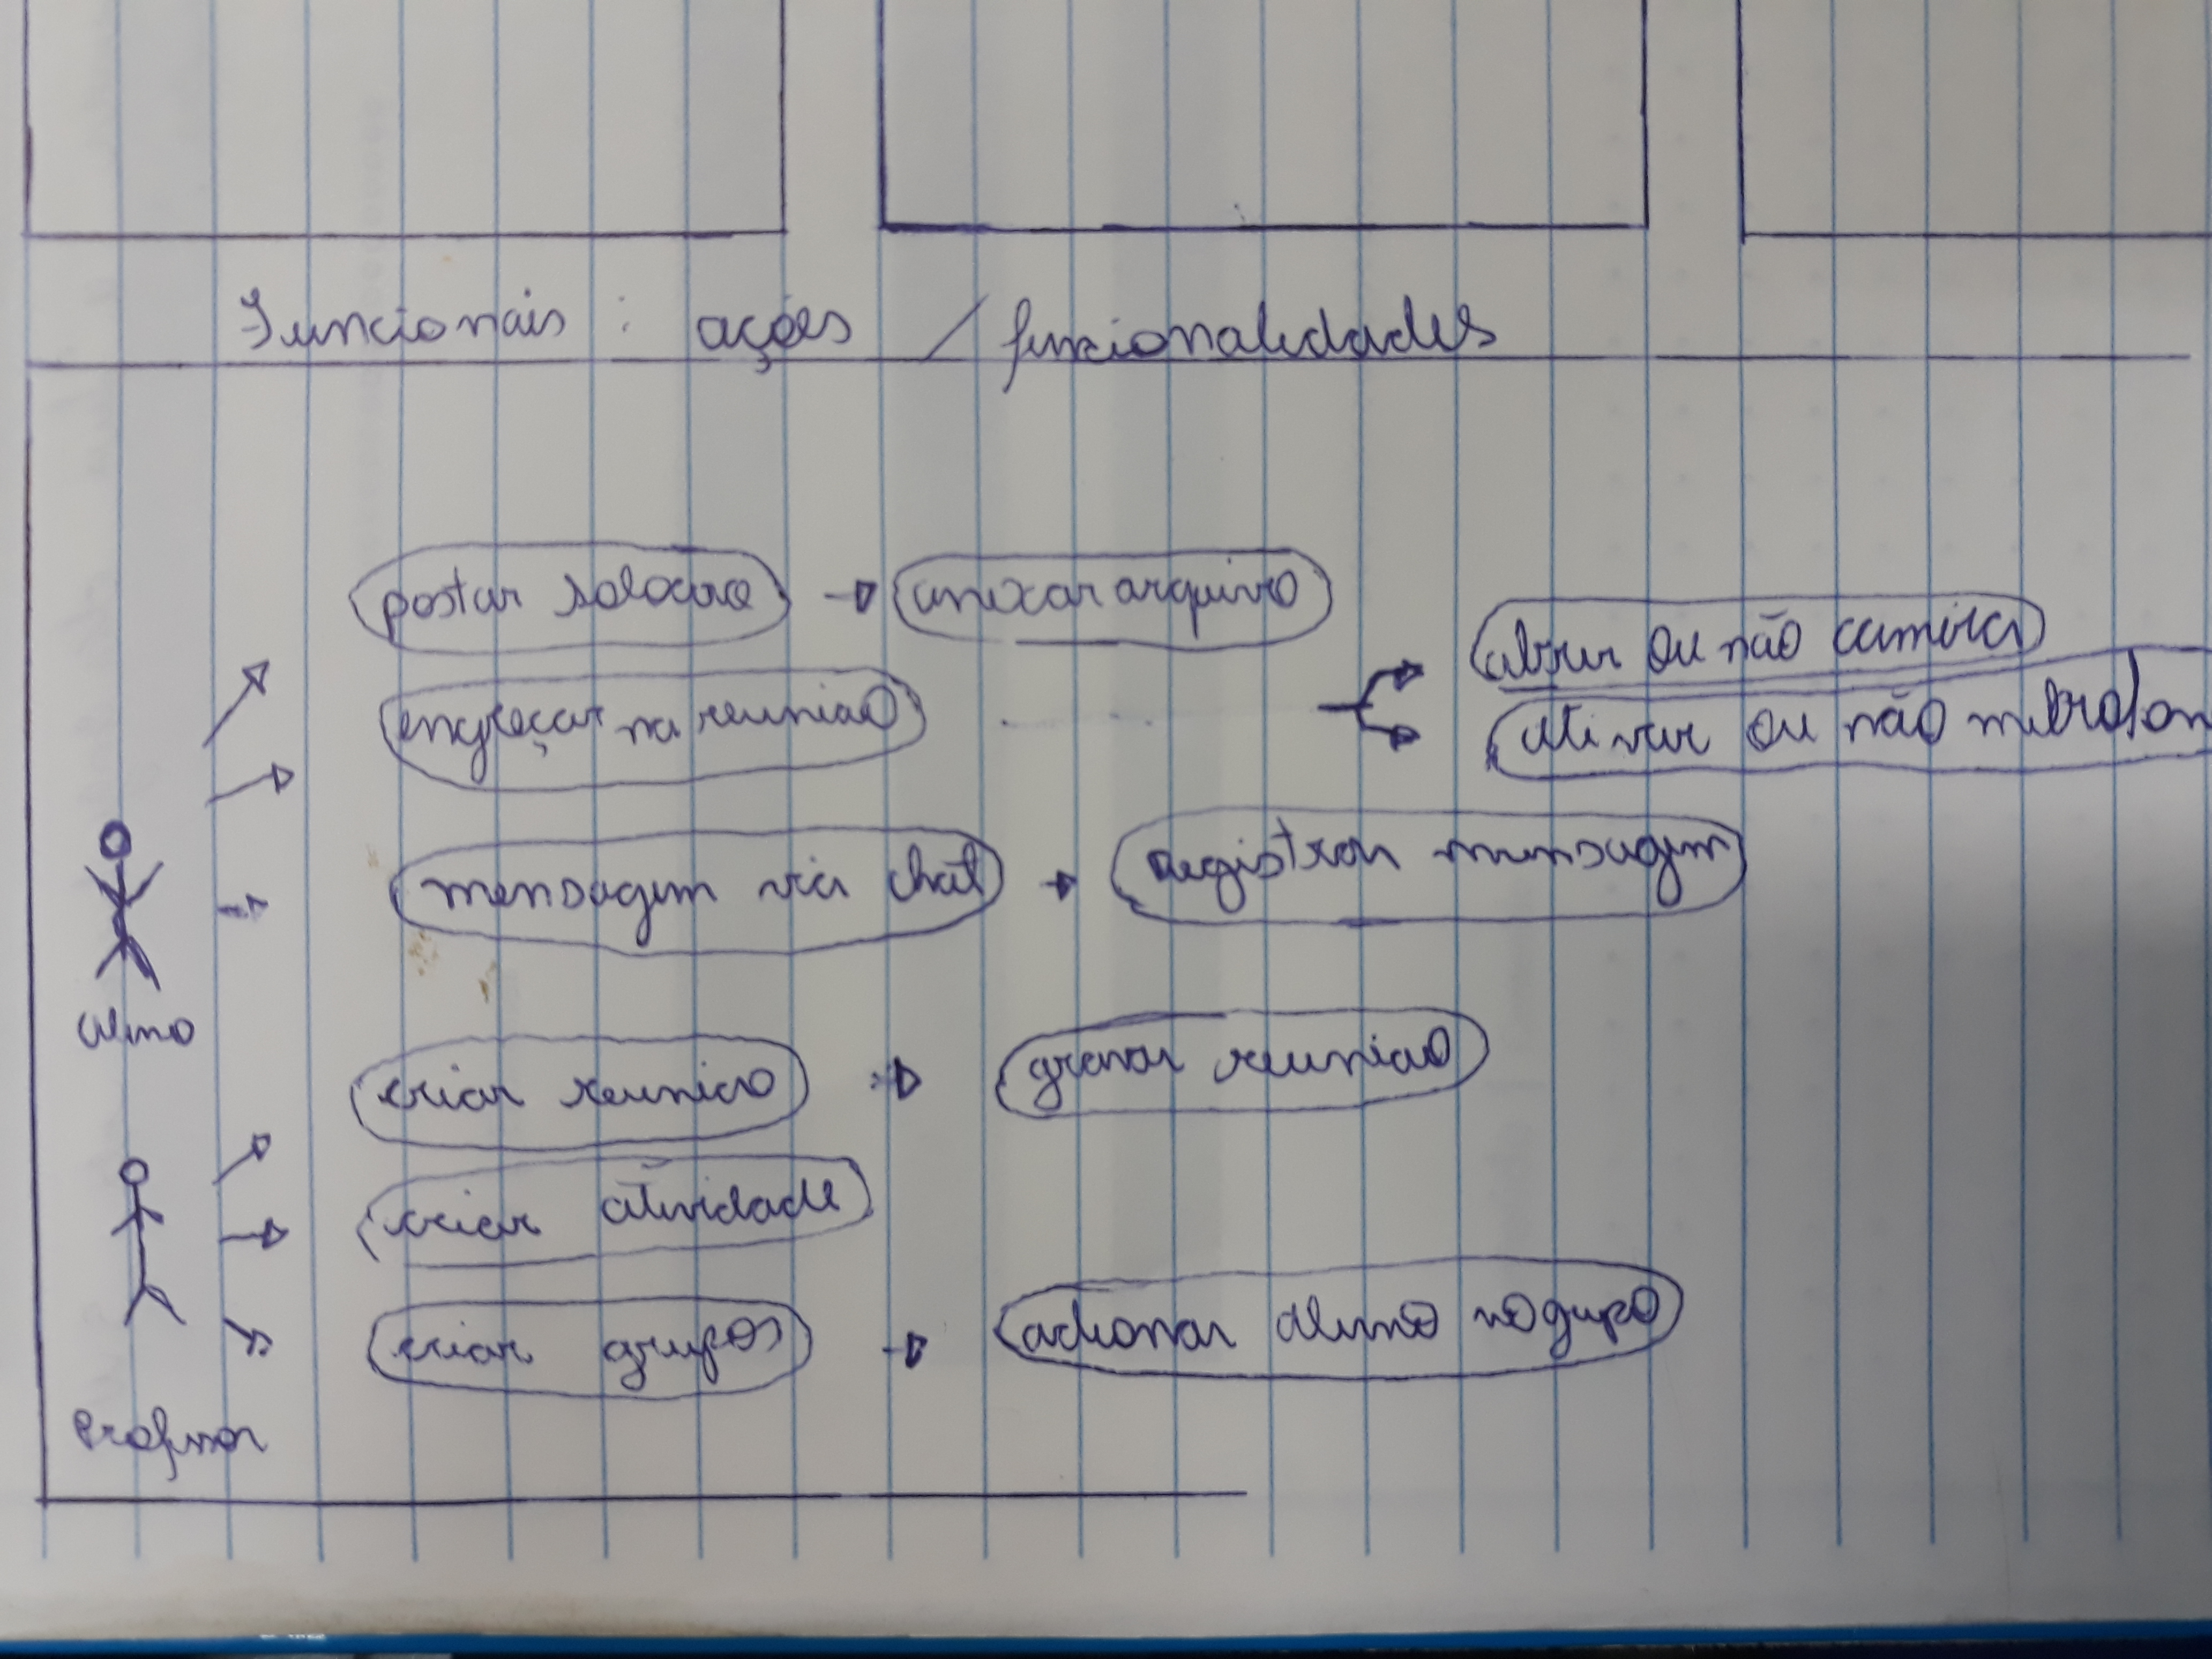 Funcionais : ações / funcionalidades
postar solocao
anexar arquivo
engreçar na reuniao
abrir ou não camera
ativar ou não microfon
mensagem via chat
registrar mensagem
Aluno
criar reuniao
gravar reuniao
criar atividade
criar grupos
adionar aluno no grupo
Professor